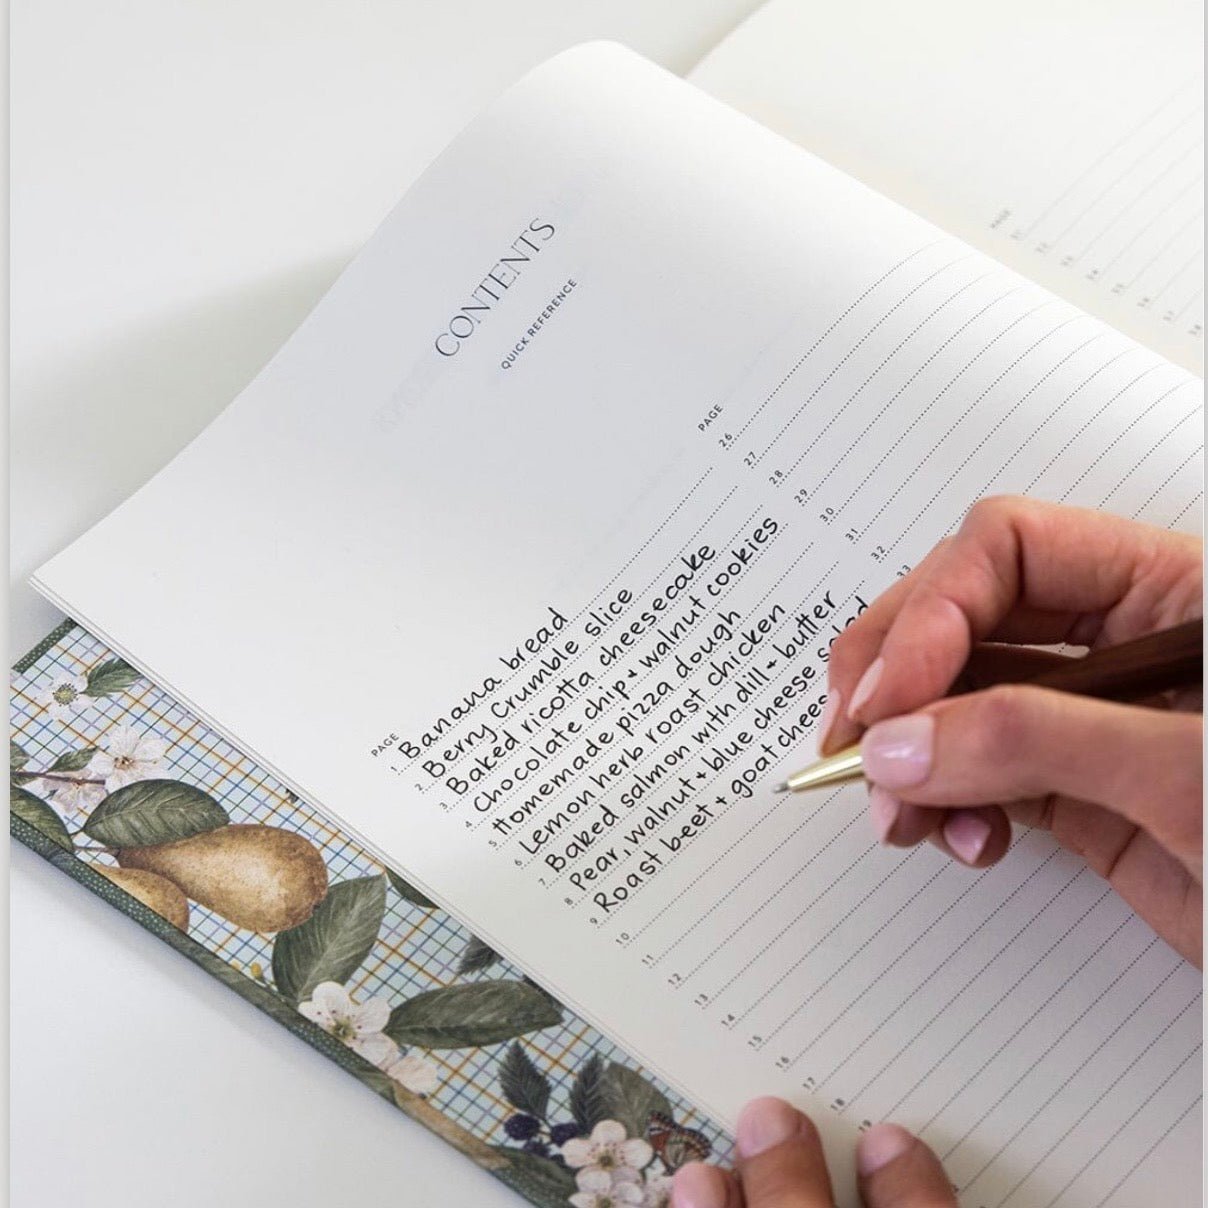 CONTENTS
QUICK REFERENCE
PAGE
1 Banana bread
2 Berry Crumble slice
3 Baked ricotta cheesecake
4 Chocolate chip + walnut cookies
5 Homemade pizza dough
6 Lemon herb roast chicken
7 Baked salmon with dill + butter
8 Pear, walnut + blue cheese salad
9 Roast beet + goat chees
10
11
12
13
14
15
16
17
18
19
PAGE
26
27
28
29
30
31
32
33
PAGE